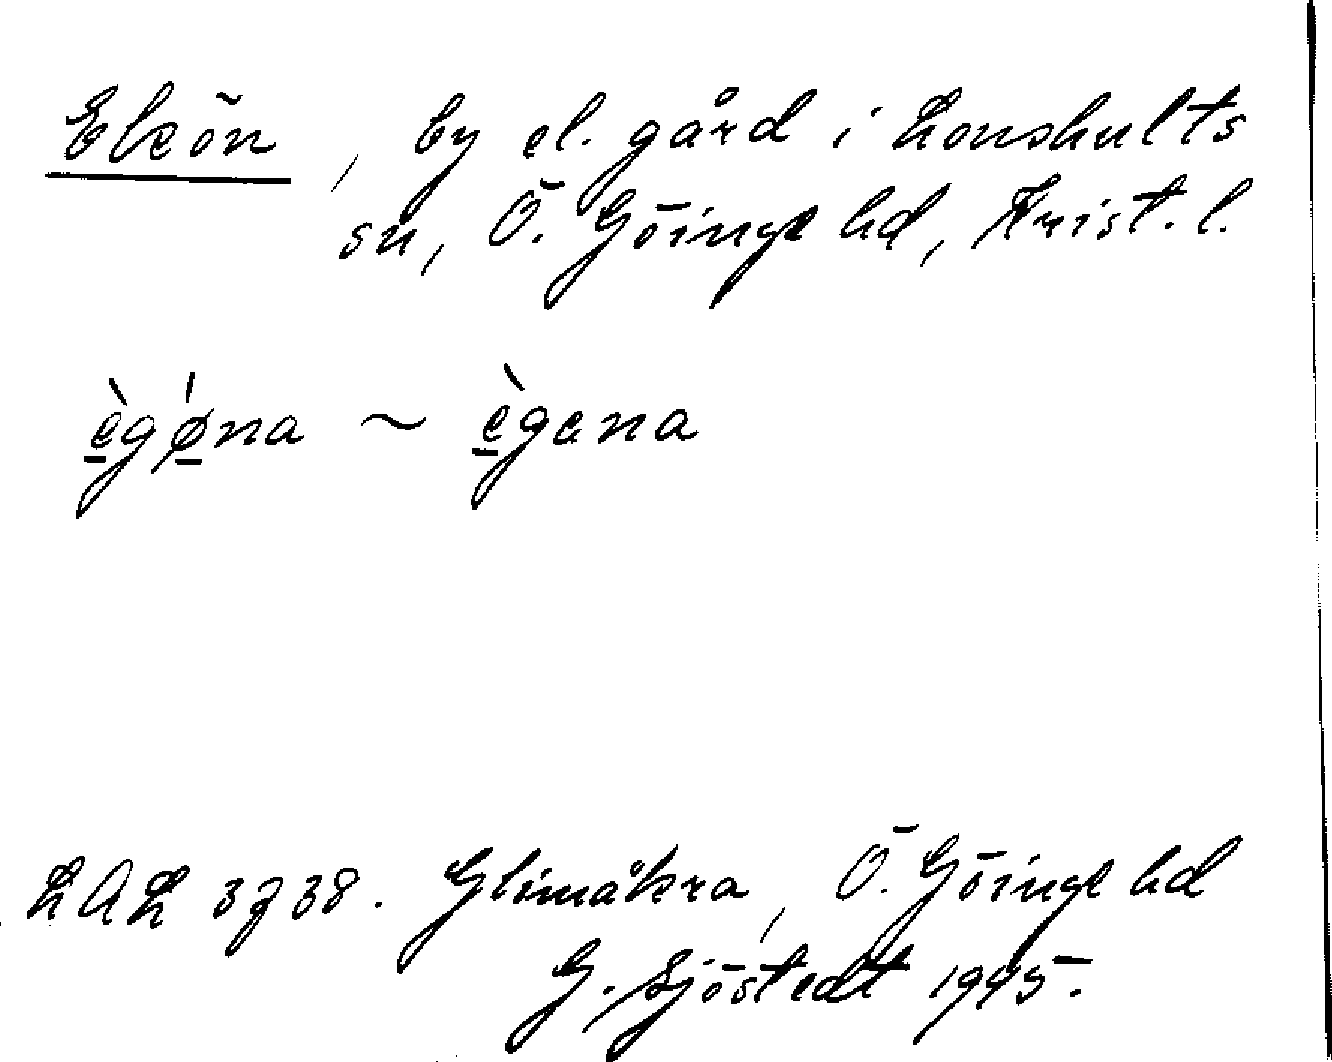 Ekön, by el. gård i Lonshults
sn, Ö. Göinge hd, Krist. l.
ègǿna ~ ègena
LAL 3738. Glimåkra, Ö. Göinge hd
G. Sjöstedt 1945.